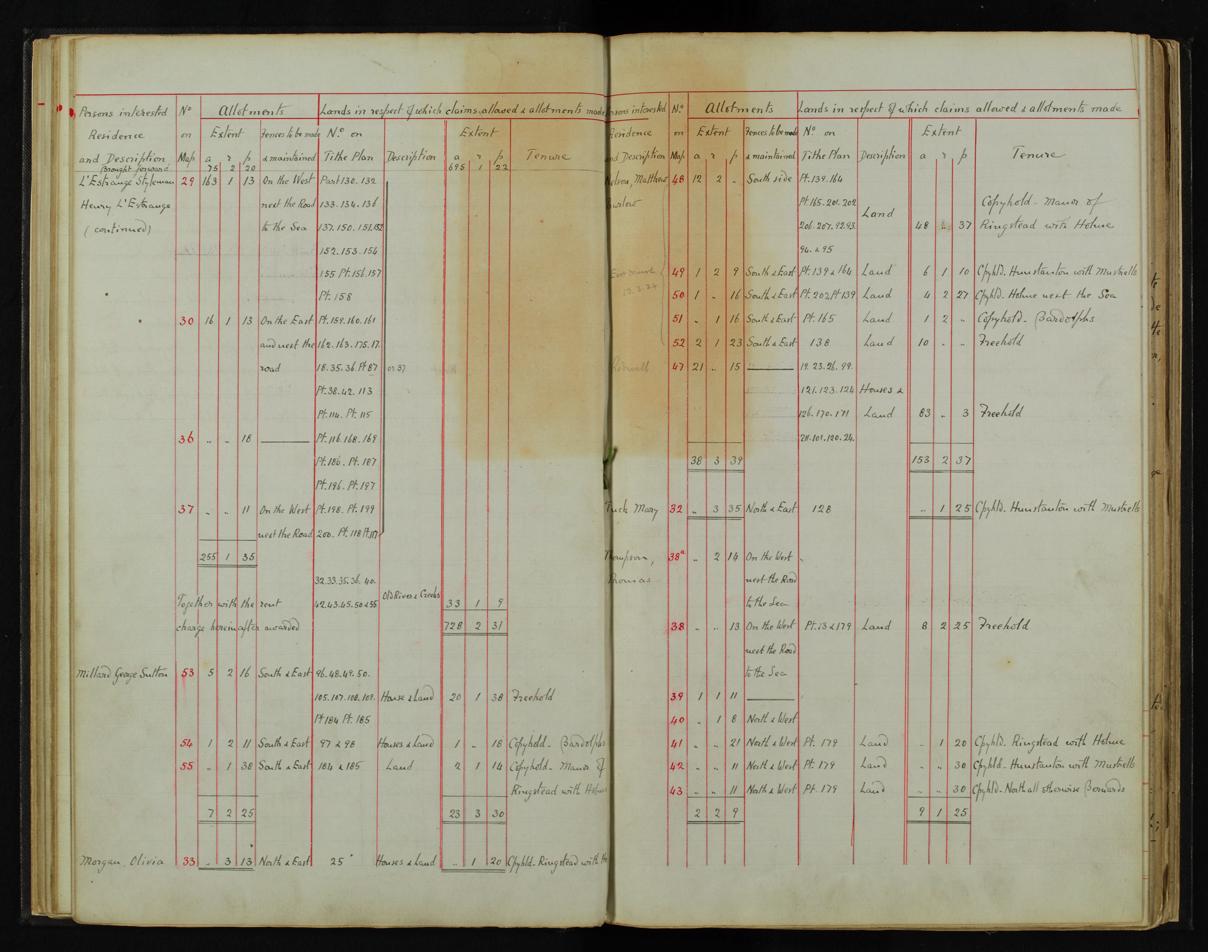 Persons interested Nº Allotments Lands in respect of which claims allowed & allotments made
Residence on Extent Fences to be made N.º on Extent
and Description Map a r p & maintained Tithe Plan Description a r p Tenure
Brought forward 75 2 20 695 1 22
L'Estrange Styleman 29 163 1 13 On the West Part 130. 132
Henry L'Estrange next the Road 133. 134. 136
(continued) to the Sea 137. 150. 151. 152
152. 153. 154
155 Pt. 156. 157
Pt. 158
30 16 1 13 On the East Pt. 159. 160. 161
and next the 162. 163. 175. 17.
road 18. 35. 36. Pt 87 or 37
Pt. 38. 42. 113
Pt. 114. Pt. 115
36 .. .. 18 Pt. 116. 168. 169
Pt. 186. Pt. 187
Pt. 196. Pt. 197
37 .. .. 11 On the West Pt. 198. Pt. 199
next the Road 200. Pt. 118 Pt. 117
255 1 35
32. 33. 35. 36. 40.
Together with the rent 42. 43. 45. 50 & 55 Old Rivers & Creeks 33 1 9
charge hereinafter awarded 728 2 31
Millard George Sutton 53 5 2 16 South & East 96. 48. 49. 50.
105. 107. 108. 109. House & Land 20 1 38 Freehold
Pt 184 Pt. 185
54 1 2 11 South & East 97 & 98 Houses & Land 1 .. 18 Copyhold - Bardolphs
55 .. 1 38 South & East 184 & 185 Land 2 1 14 Copyhold - Manor of
Ringstead with Holme
7 2 25 23 3 30
Morgan, Olivia 33 .. 3 13 North & East 25 Houses & Land .. 1 20 Cpyhld. Ringstead with
Persons interested N.º Allotments Lands in respect of which claims allowed & allotments made
Residence on Extent Fences to be made N.º on Extent
and Description Map a r p & maintained Tithe Plan Description a r p Tenure
Nelson, Matthew 48 12 2 .. South side Pt. 139. 164
Pt. 165. 201. 202 Land Copyhold - Manor of
206. 207. 92. 93. 48 .. 37 Ringstead with Holme
94. & 95
49 1 2 9 South & East Pt. 139 & 164 Land 6 1 10 Cpyhld. Hunstanton with Mustrells
50 1 .. 16 South & East Pt. 202. Pt 139 Land 4 2 27 Cpyhld. Holme next the Sea
12.2.24
51 .. 1 16 South & East Pt. 165 Land 1 2 .. Copyhold - Bardolphs
52 2 1 23 South & East 138 Land 10 .. .. Freehold
47 21 .. 15 19. 23. 26. 99.
121. 123. 124 Houses &
126. 170. 171 Land 83 .. 3 Freehold
211. 101. 120. 24.
38 3 39 153 2 37
Tuck Mary 32 .. 3 35 North & East 128 .. 1 25 Cpyhld. Hunstanton with Mustrells
Thompson, 38a .. 2 14 On the West
Thomas next the Road
to the Sea
38 .. .. 13 On the West Pt. 13 & 179 Land 8 2 25 Freehold
next the Road
to the Sea
39 1 1 11
40 .. 1 8 North & West
41 .. .. 21 North & West Pt. 179 Land .. 1 20 Cpyhld. Ringstead with Holme
42 .. .. 11 North & West Pt. 179 Land .. .. 30 Cpyhld. Hunstanton with Mustrells
43 .. .. 11 North & West Pt. 179 Land .. .. 30 Cpyhld. Northall otherwise Berwards
2 2 9 9 1 25